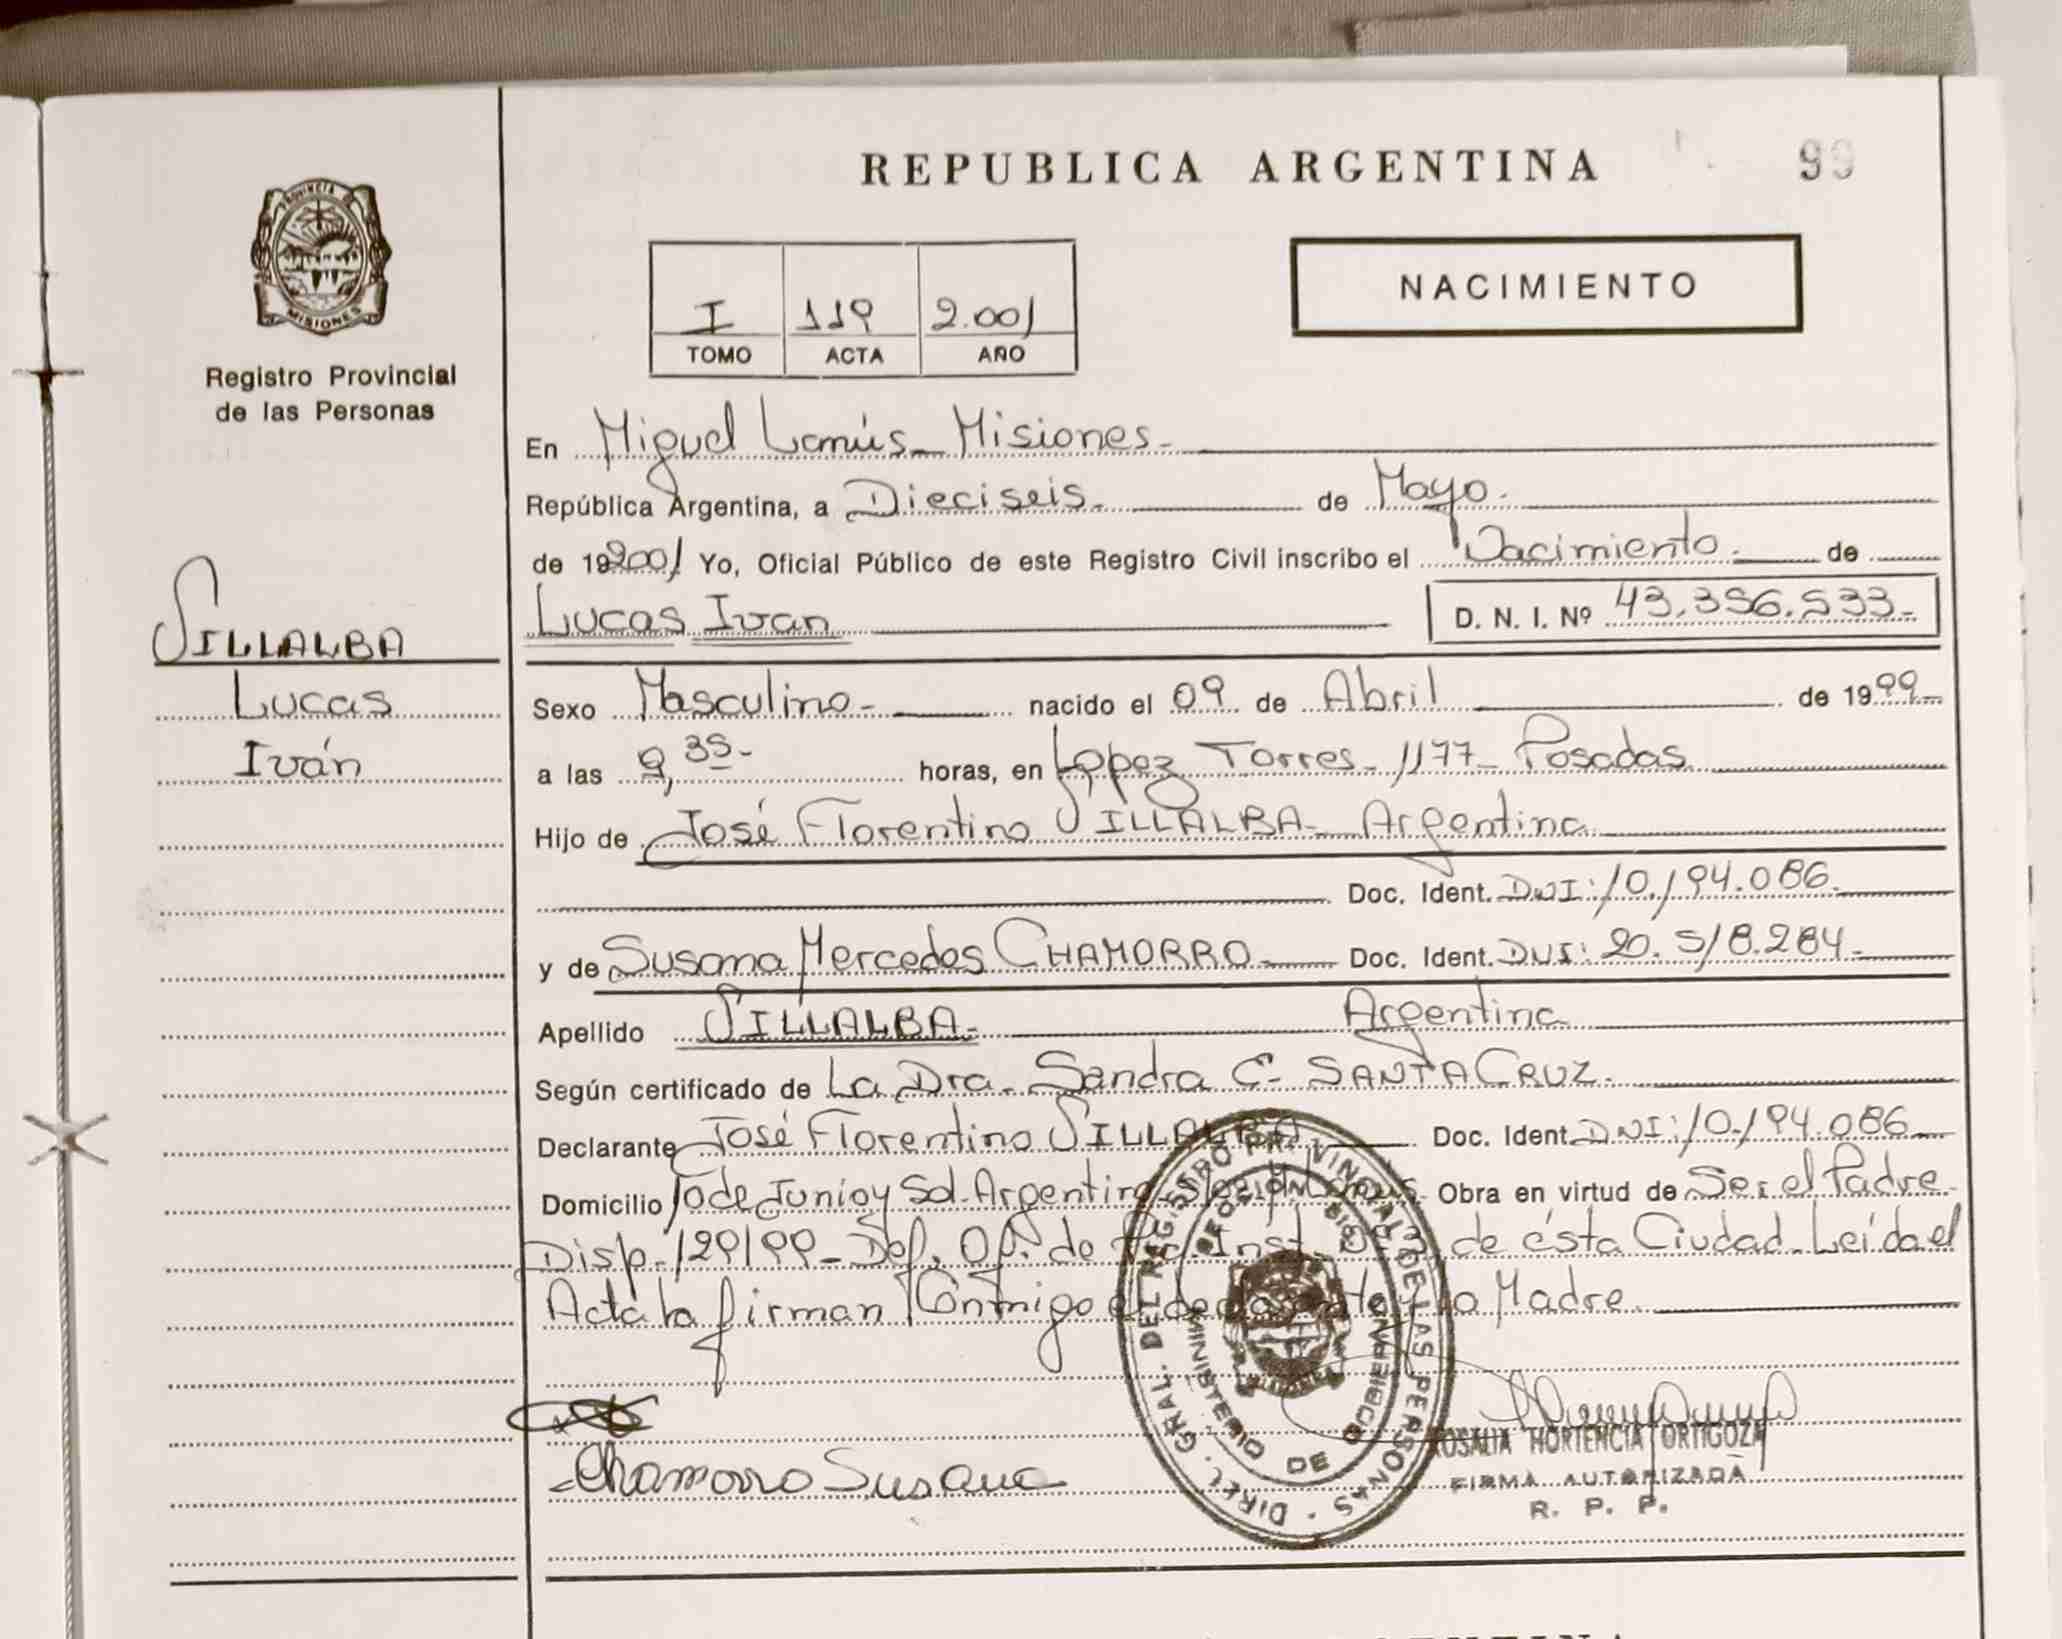 REPUBLICA ARGENTINA
99
PROVINCIA DE
MISIONES
Registro Provincial
de las Personas
NACIMIENTO
I 119 2.001
TOMO ACTA AÑO
En Miguel Lanús - Misiones -
República Argentina, a Dieciseis. de Mayo.
de 192001 Yo, Oficial Público de este Registro Civil inscribo el Nacimiento. de
Lucas Ivan D. N. I. Nº 43.356.533.-
VILLALBA
Lucas
Iván
Sexo Masculino - nacido el 09 de Abril de 1999-
a las 9,35- horas, en Lopez Torres - 1177 - Posadas
Hijo de José Florentino VILLALBA - Argentina
Doc. Ident. DNI: 10.194.086.
y de Susana Mercedes CHAMORRO Doc. Ident. DNI: 20.518.284.-
Apellido VILLALBA - Argentina
Según certificado de La Dra. Sandra C. SANTA CRUZ.
Declarante José Florentino VILLALBA Doc. Ident. DNI: 10.194.086
Domicilio 10 de Junio y Sol. Argentino - Miguel Lanus. Obra en virtud de Ser el Padre
Disp. 129/99 - Def. Of. de Inst. de ésta Ciudad - Leída el
Acta la firman Conmigo el declarante y la Madre.
Chamorro Susana
DIREC. GRAL. DEL REGISTRO PROVINCIAL DE LAS PERSONAS
MINISTERIO DE GOBIERNO
ROSALIA HORTENCIA ORTIGOZA
FIRMA AUTORIZADA
R. P. P.